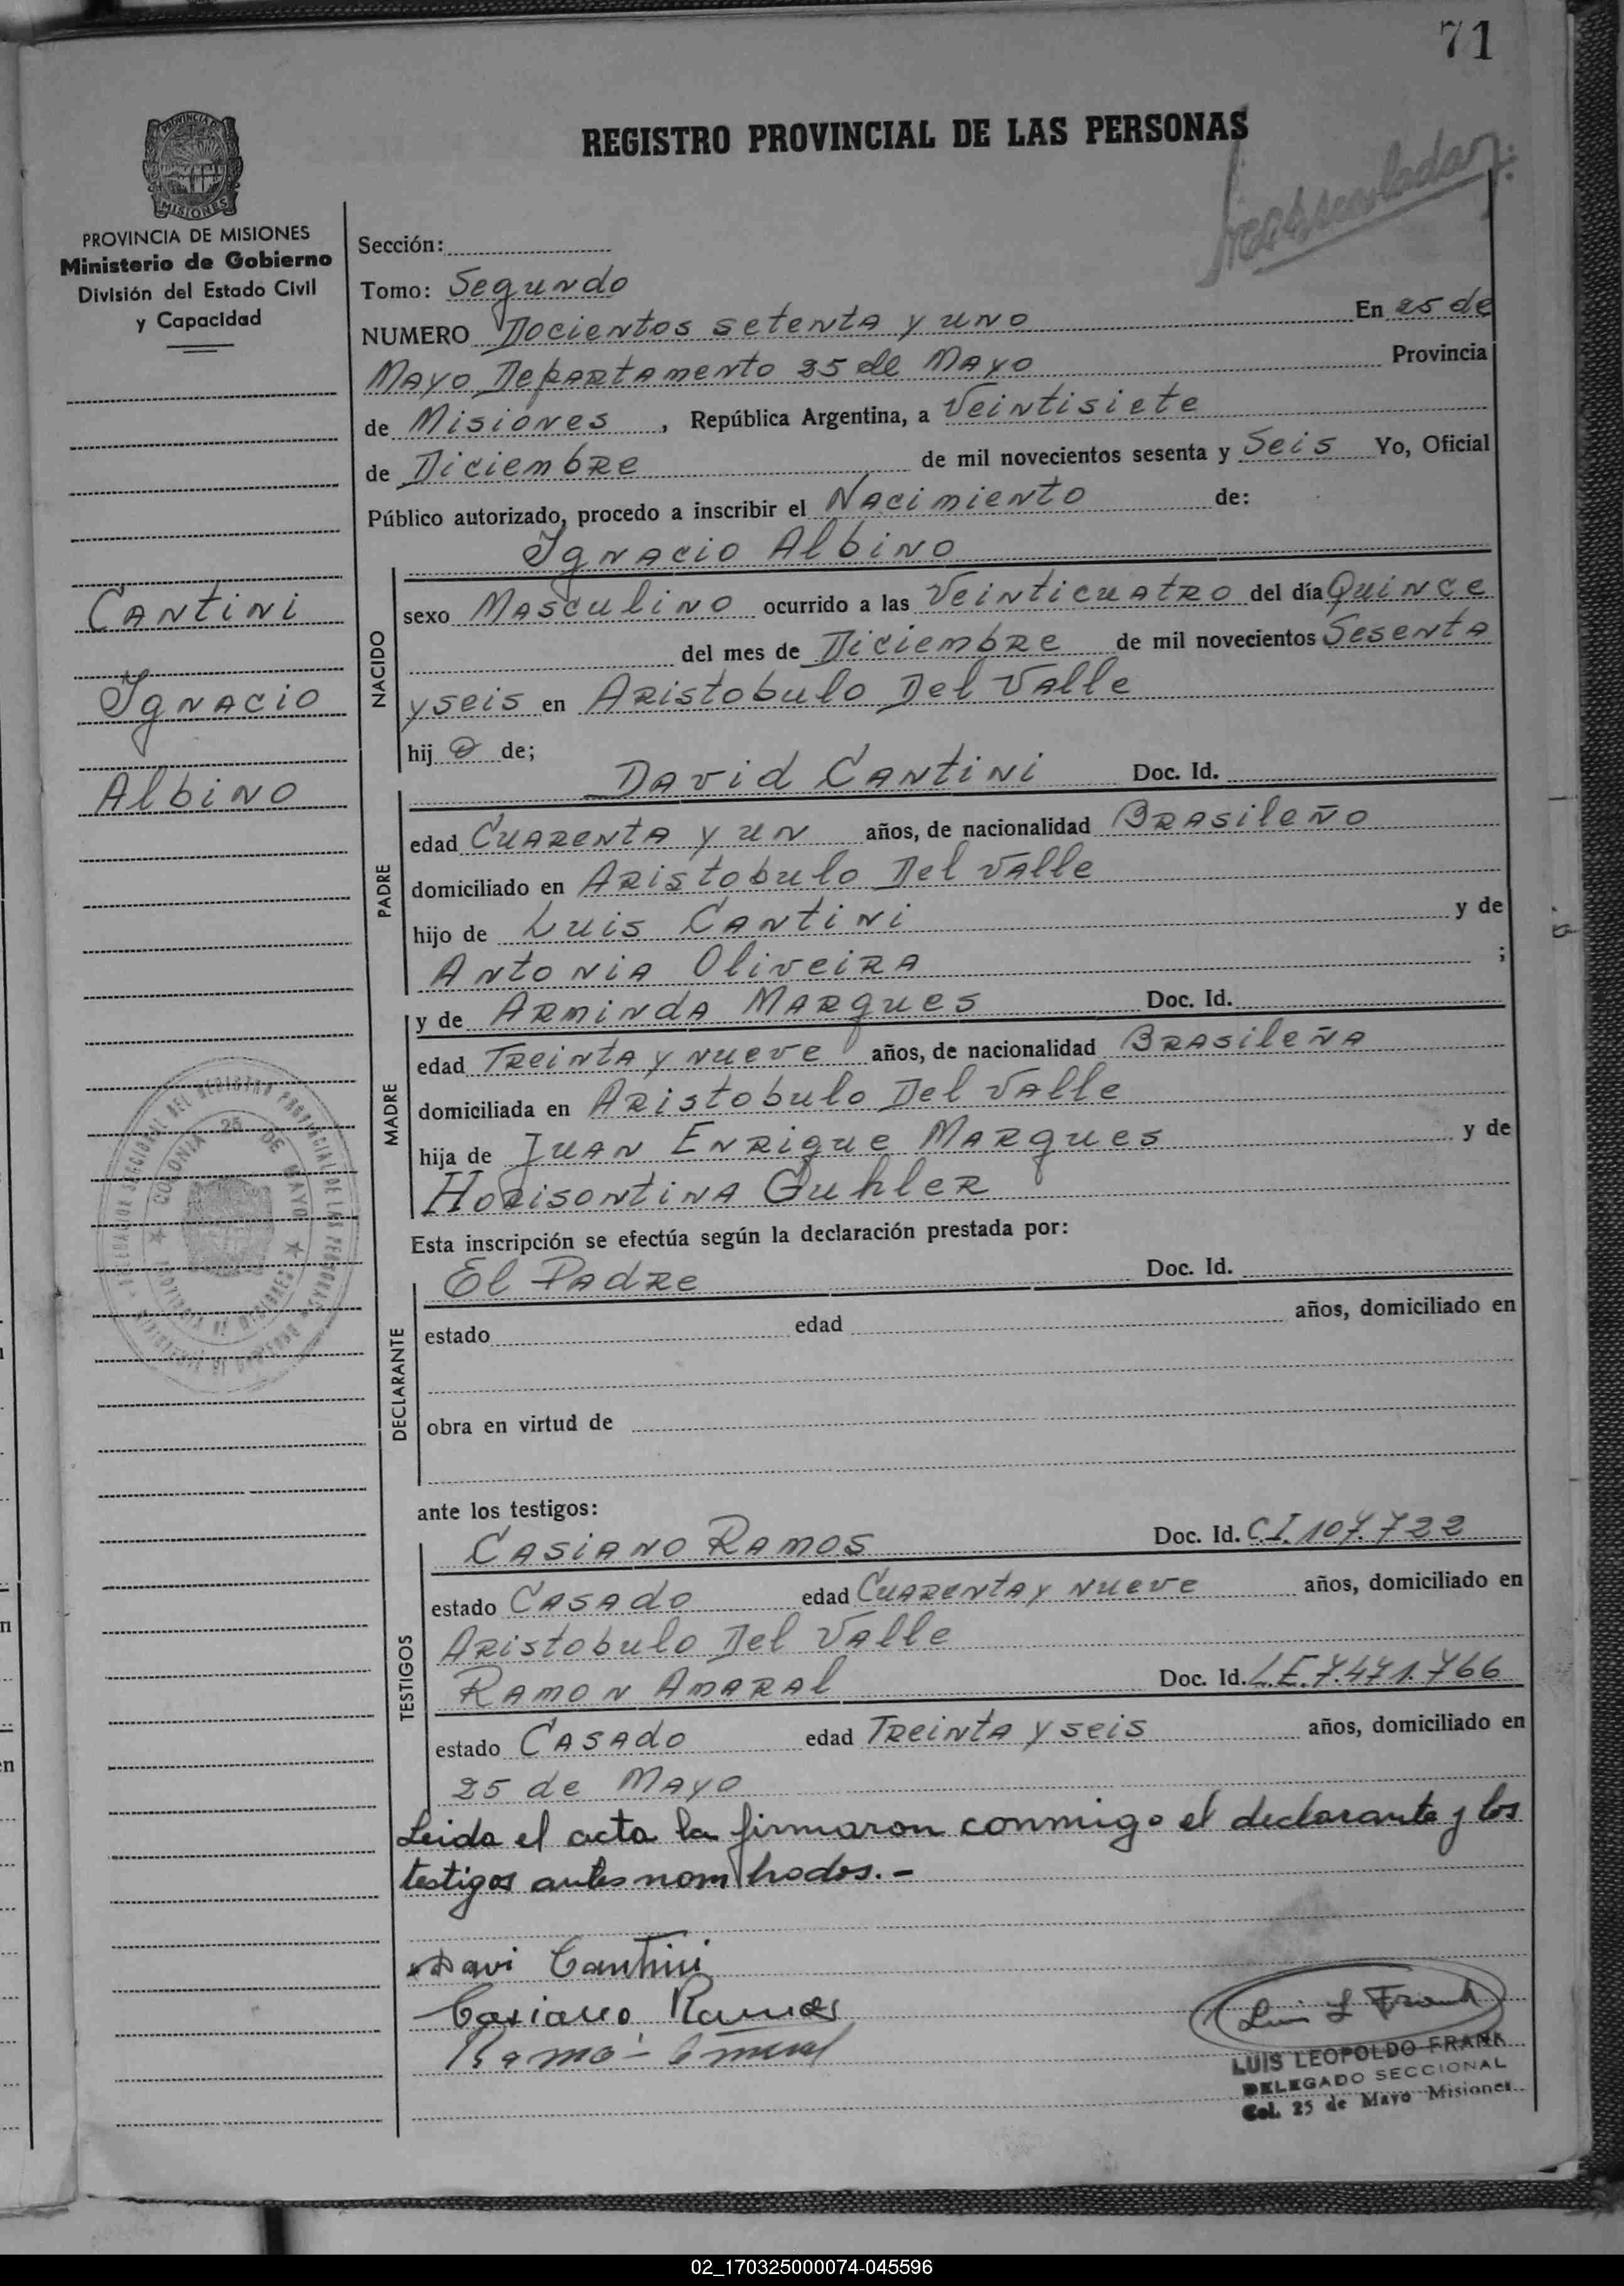 71
REGISTRO PROVINCIAL DE LAS PERSONAS
PROVINCIA DE
MISIONES
PROVINCIA DE MISIONES
Ministerio de Gobierno
División del Estado Civil
y Capacidad
Cantini
Ignacio
Albino
Sección:
Tomo: Segundo
NUMERO Docientos setenta y uno En 25 de
Mayo Departamento 25 de Mayo Provincia
de Misiones, República Argentina, a Veintisiete
de Diciembre de mil novecientos sesenta y Seis Yo, Oficial
Público autorizado, procedo a inscribir el Nacimiento de:
Ignacio Albino
NACIDO
sexo Masculino ocurrido a las Veinticuatro del día Quince
del mes de Diciembre de mil novecientos Sesenta
y seis en Aristobulo Del Valle
hijo de;
David Cantini Doc. Id.
PADRE
edad Cuarenta y un años, de nacionalidad Brasileño
domiciliado en Aristobulo Del Valle
hijo de Luis Cantini y de
Antonia Oliveira ;
y de Arminda Marques Doc. Id.
MADRE
edad Treinta y nueve años, de nacionalidad Brasileña
domiciliada en Aristobulo Del Valle
hija de Juan Enrique Marques y de
Horisontina Guhler
Esta inscripción se efectúa según la declaración prestada por:
El Padre Doc. Id.
DECLARANTE
estado edad años, domiciliado en
obra en virtud de
ante los testigos:
Casiano Ramos Doc. Id. C.I. 107.722
TESTIGOS
estado Casado edad Cuarenta y nueve años, domiciliado en
Aristobulo Del Valle
Ramon Amaral Doc. Id. L.E. 7.471.766
estado Casado edad Treinta y seis años, domiciliado en
25 de Mayo
Leida el acta la firmaron conmigo el declarante y los
testigos antes nombrados.-
Davi Cantini
Casiano Ramos
Luis L Frank
LUIS LEOPOLDO FRANK
DELEGADO SECCIONAL
Col. 25 de Mayo Misiones
COLONIA 25 DE MAYO
DEL REGISTRO PROVINCIAL DE LAS PERSONAS
02_170325000074-045596